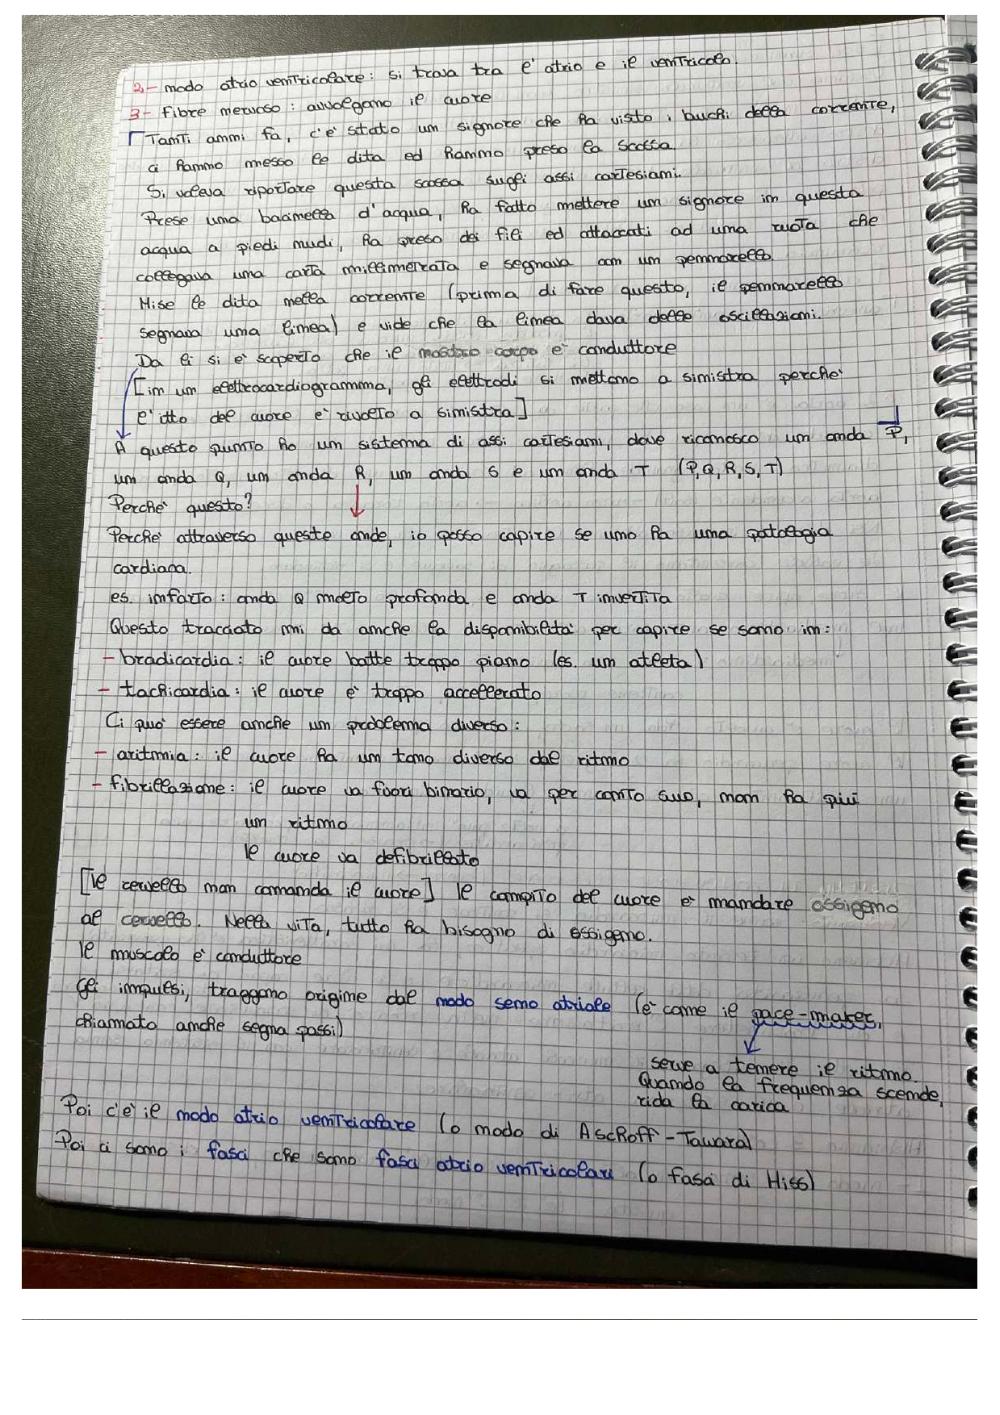 2- nodo atrio ventricolare: si trova tra l'atrio e il ventricolo.
3- fibre nervose: avvolgono il cuore
Tanti anni fa, c'è stato un signore che ha visto i buchi della corrente,
ci hanno messo le dita ed hanno preso la scossa.
Si voleva riportare questa scossa sugli assi cartesiani.
Prese una bacinella d'acqua, ha fatto mettere un signore in questa
acqua a piedi nudi, ha preso dei fili ed attaccati ad una ruota che
collegava una carta millimetrata e segnava con un pennarello.
Mise le dita nella corrente (prima di fare questo, il pennarello
segnava una linea) e vide che la linea dava delle oscillazioni.
Da lì si è scoperto che il nostro corpo è conduttore
[in un elettrocardiogramma, gli elettrodi si mettono a sinistra perchè
l'itto del cuore è rivolto a sinistra]
A questo punto ho un sistema di assi cartesiani, dove riconosco un onda P,
un onda Q, un onda R, un onda S e un onda T (P,Q,R,S,T)
Perchè questo?
Perchè attraverso queste onde, io posso capire se uno ha una patologia
cardiaca.
es. infarto: onda Q molto profonda e onda T invertita
Questo tracciato mi da anche la disponibilità per capire se sono in:
- bradicardia: il cuore batte troppo piano (es. un atleta)
- tachicardia: il cuore è troppo accellerato
Ci può essere anche un problema diverso:
- aritmia: il cuore ha un tono diverso dal ritmo
- fibrillazione: il cuore va fuori binario, va per conto suo, non ha più
un ritmo
Il cuore va defibrillato
[Il cervello non comanda il cuore] Il compito del cuore è mandare ossigeno
al cervello. Nella vita, tutto ha bisogno di ossigeno.
Il muscolo è conduttore
Gli impulsi, traggono origine dal nodo seno atriale (è come il pace-maker,
chiamato anche segna passi)
serve a tenere il ritmo.
Quando la frequenza scende,
rida la carica
Poi c'è il nodo atrio ventricolare (o nodo di Aschoff-Tawara)
Poi ci sono i fasci che sono fasci atrio ventricolari (o fasci di Hiss)